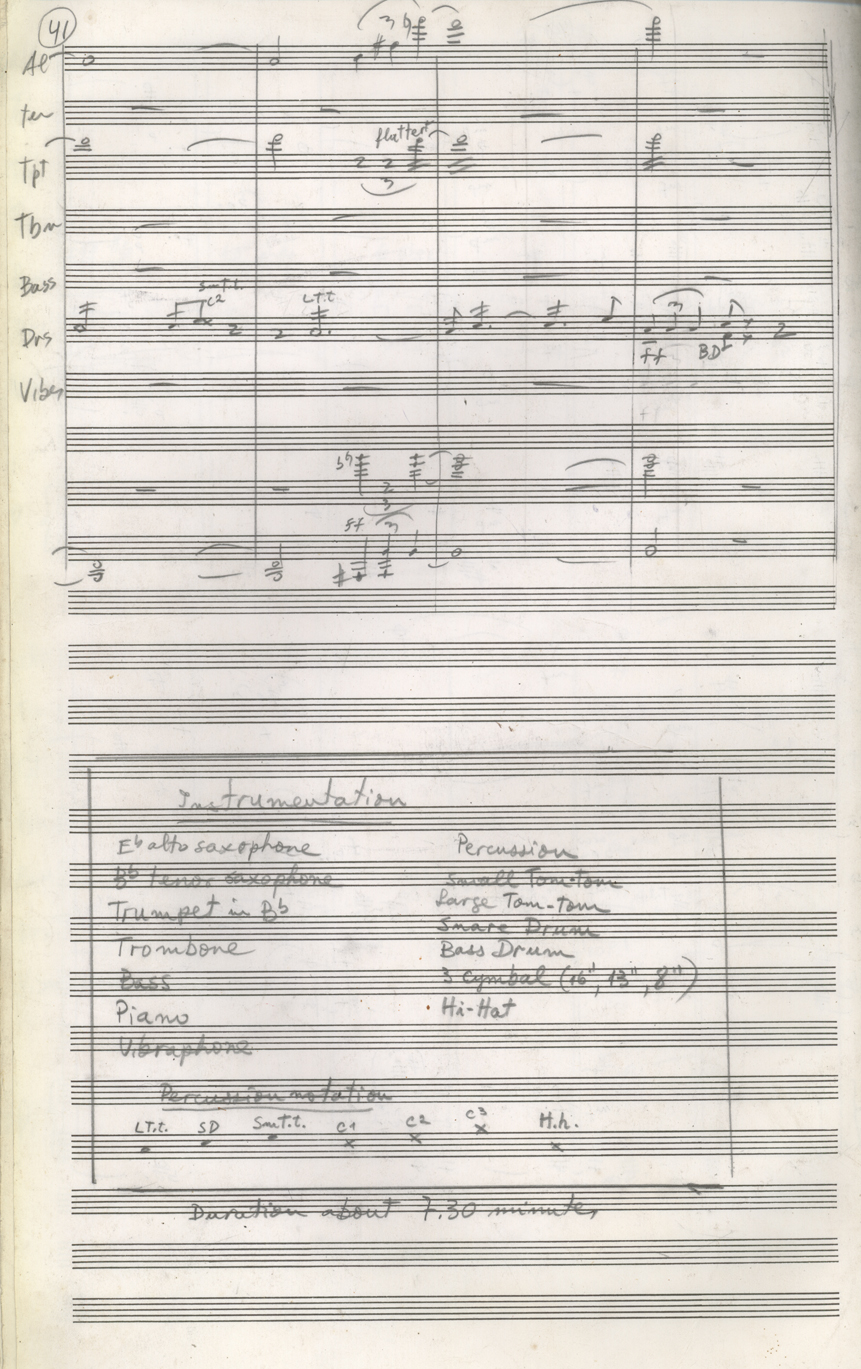 41
Al
ten
Tpt
flatter
3
Tbn
Bass
Sm T.t.
C2
L T.t
Drs
3
ff
BD
Vibes
ff
3
Instrumentation
Eb alto saxophone
Bb tenor saxophone
Trumpet in Bb
Trombone
Bass
Piano
Vibraphone
Percussion
Small Tom-tom
Large Tom-tom
Snare Drum
Bass Drum
3 cymbal (16", 13", 8")
Hi-Hat
Percussion notation
LT.t. SD SmT.t. C1 C2 C3 H.h.
Duration about 7.30 minutes